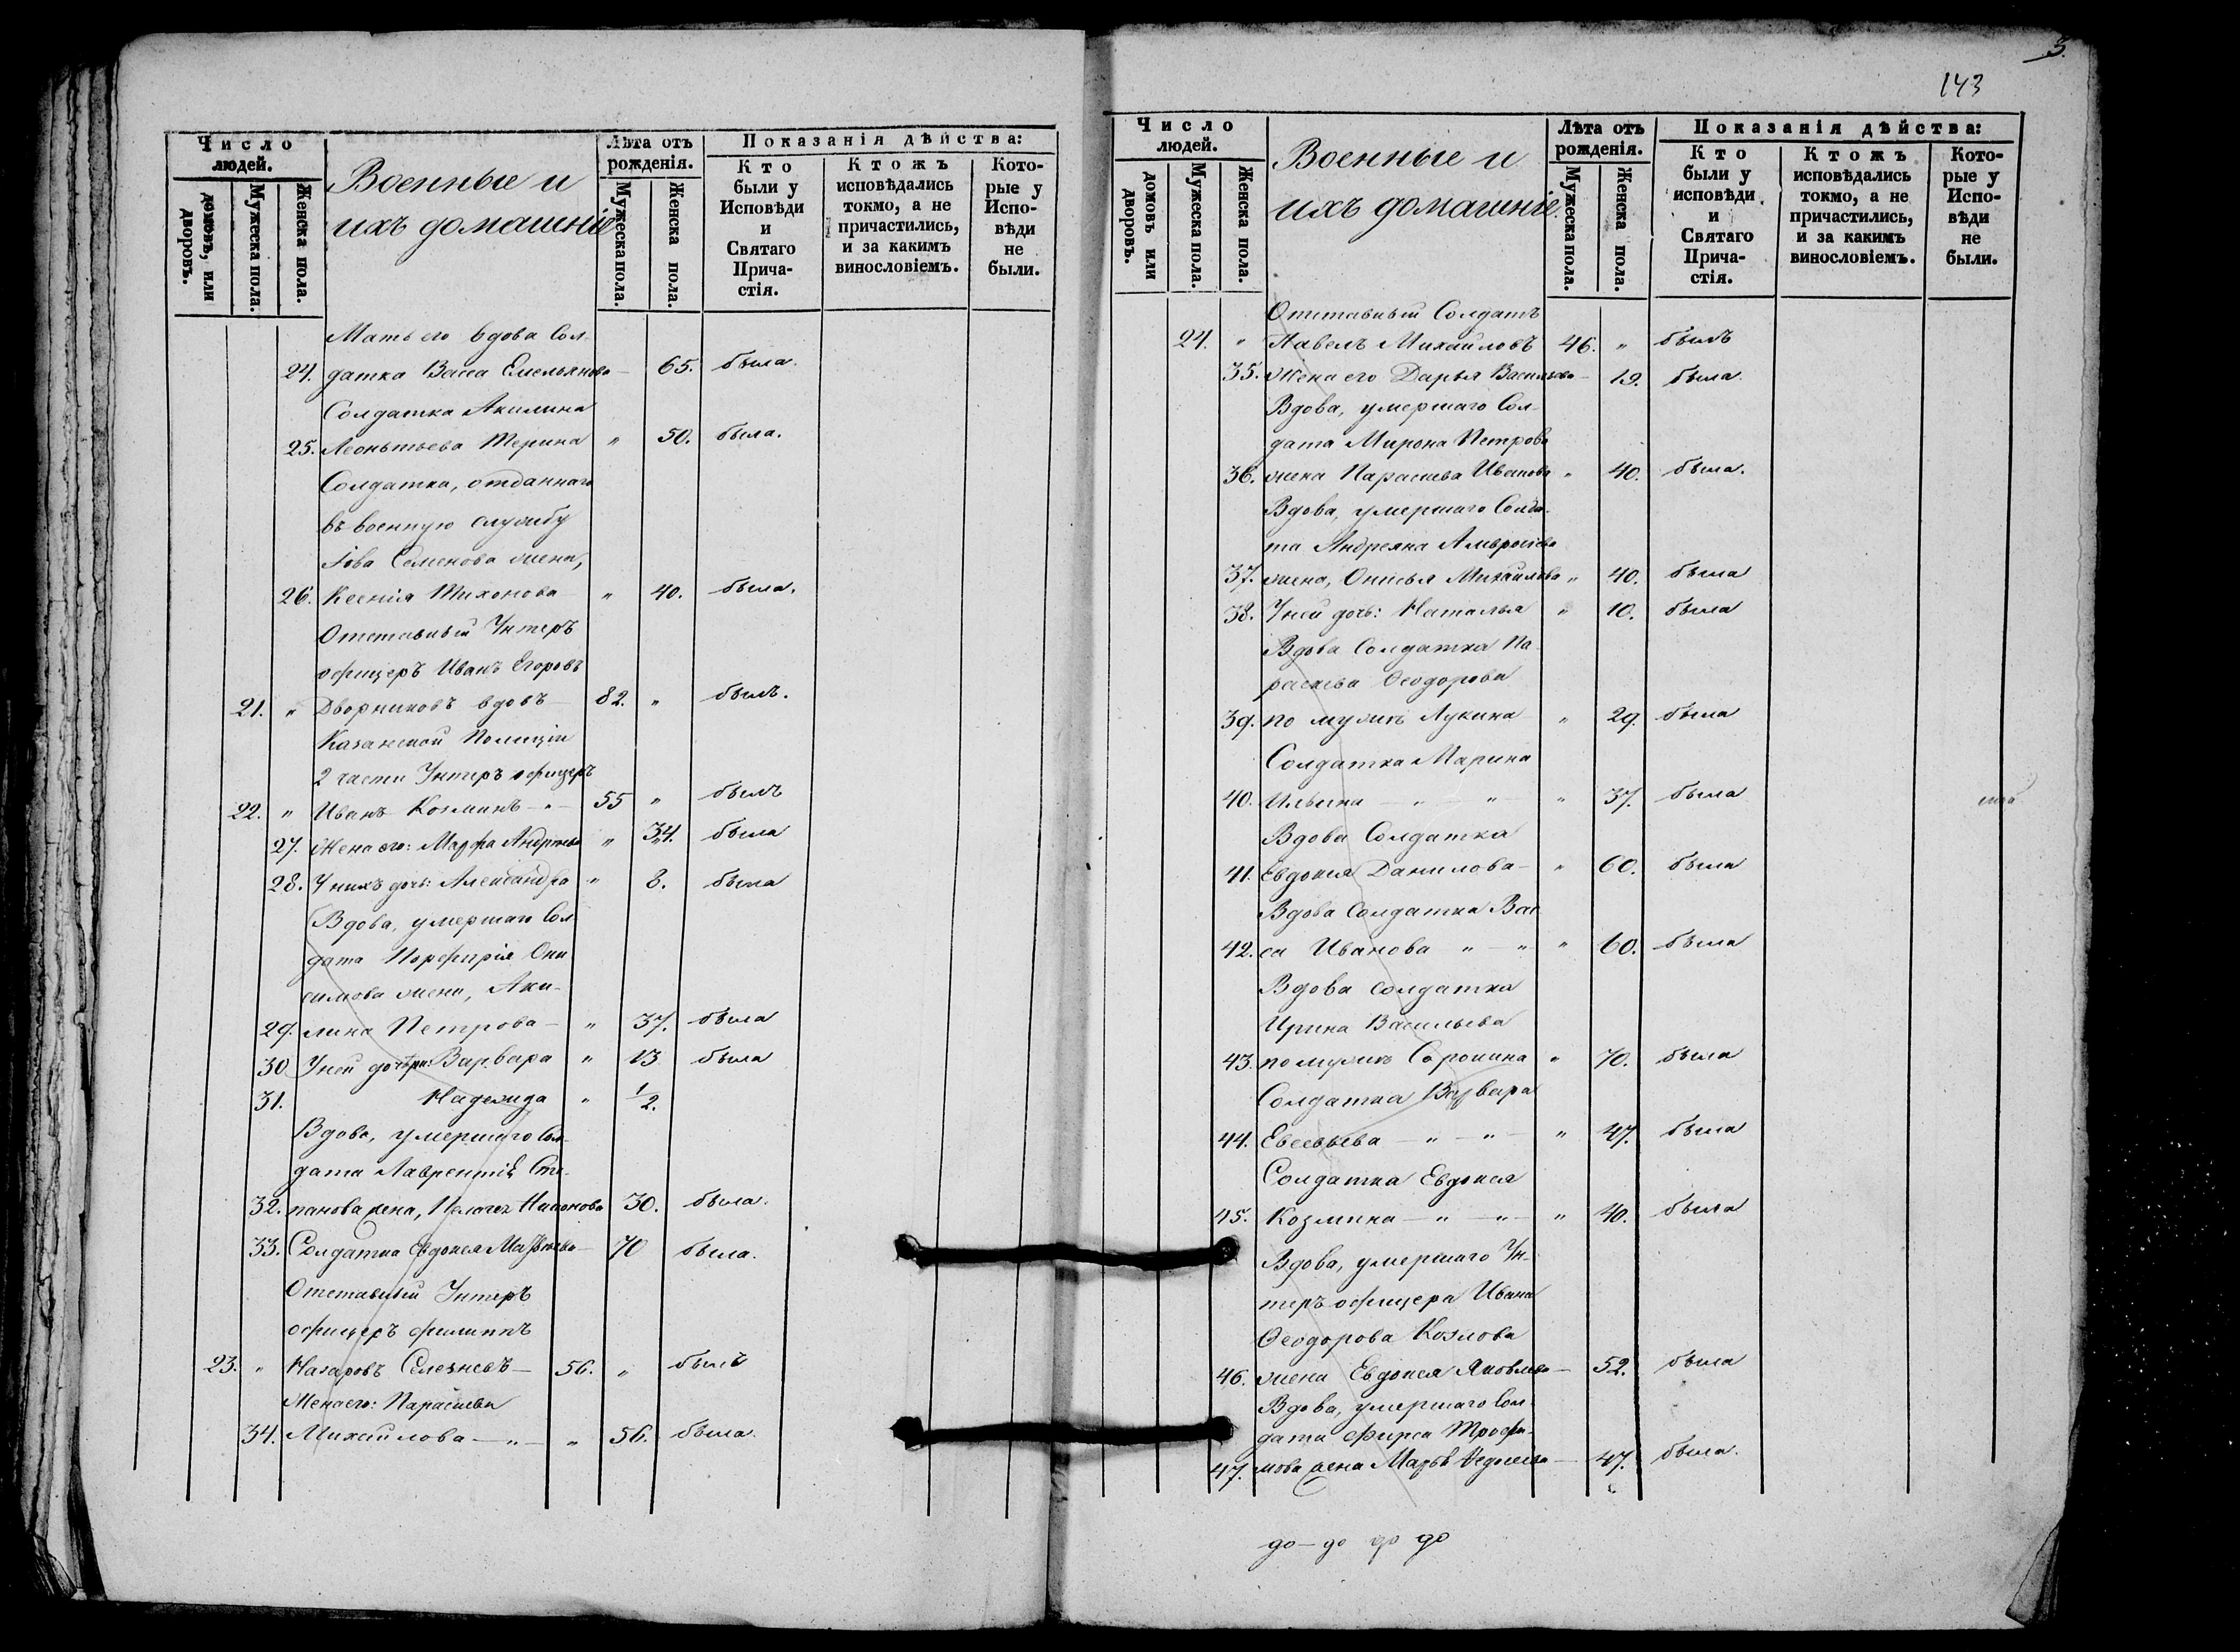 Число людей.
домовъ, или дворовъ.
Мужеска пола.
Женска пола.
Военные и
ихъ домашніе
Лѣта отъ рожденія.
Мужеска пола.
Женска пола.
Показанія дѣйства:
Кто были у Исповѣди и Святаго Прича-стія.
Ктожъ исповѣдались токмо, а не причастились, и за какимъ винословіемъ.
Кото-рые у Испо-вѣди не были.
Мать его вдова Сол-
24. датка Васса Емельянова — 65. была.
Солдатка Акилина
25. Леонтьева Терина " 50. была.
Солдатка, отданнаго
въ военную службу
Іова Семенова жена,
26. Ксенія Тихонова " 40. была.
Отставный Унтеръ
офицеръ Иванъ Егоровъ
21. " Дворниковъ вдовъ — 82. " былъ.
Казанской Полиціи
2 части Унтеръ офицеръ
22. " Иванъ Козминъ — " — 55 " былъ
27. Жена его: Марфа Андреева " 34. была
28. У нихъ дочь: Александра " 8. была
Вдова, умершаго Сол
дата Порфирія Они
симова жена, Аки-
29. лина Петрова — " 37. была
30 У ней дочери: Варвара " 13 была
31. Надежда " 1/2.
Вдова, умершаго Сол-
дата Лаврентія Сте-
32. панова жена, Пелагея 30. была.
33. Солдатка Евдокея Матвѣева — 70 была.
Отставный Унтеръ
офицеръ Филиппъ
23. " Назаровъ Селезневъ — 56. " былъ
Жена его: Парасиева
34. Михаилова — " — " 56. была.
3.
143
Число людей.
домовъ или дворовъ.
Мужеска пола.
Женска пола.
Военные и
ихъ домашніе.
Лѣта отъ рожденія.
Мужеска пола.
Женска пола.
Показанія дѣйства:
Кто были у исповѣди и Святаго Прича-стія.
Ктожъ исповѣдались токмо, а не причастились, и за какимъ винословіемъ.
Кото-рые у Испо-вѣди не были.
Отставный Солдатъ
24. " Павелъ Михайловъ 46. " былъ
35. Жена его Дарья Васильева — 19. была.
Вдова, умершаго Сол-
дата Мирона Петрова
36. жена Парасиева Иванова " 40. была.
Вдова, умершаго Солда-
та Андреяна Амвросиева
37. жена, Михайлова " 40. была
38. У ней дочь: Наталья " 10. была
Вдова Солдатка Па-
расиева Ѳеодорова
39. по мужѣ Лукина " 29. была
Солдатка Марина
40. Ильина — " — " — " 37. была
Вдова Солдатка
41. Евдокея Данилова — " 60. была
Вдова Солдатка Вас
42. са Иванова " — " " 60. была
Вдова Солдатка
Ирина Васильева
43. по мужѣ Сорокина " 70. была
Солдатка Варвара
44. Евсевьева — " — " — " 47. была
Солдатка Евдокея
45. Козмина — " — " — " 40. была
Вдова, умершаго Ун-
теръ офицера Ивана
Ѳеодорова Козлова
46. жена Евдокея Яковлева — 52. была
Вдова, умершаго Сол-
дата Фирса Трофи-
47. мова жена Марья — 47. была.
до — до до до